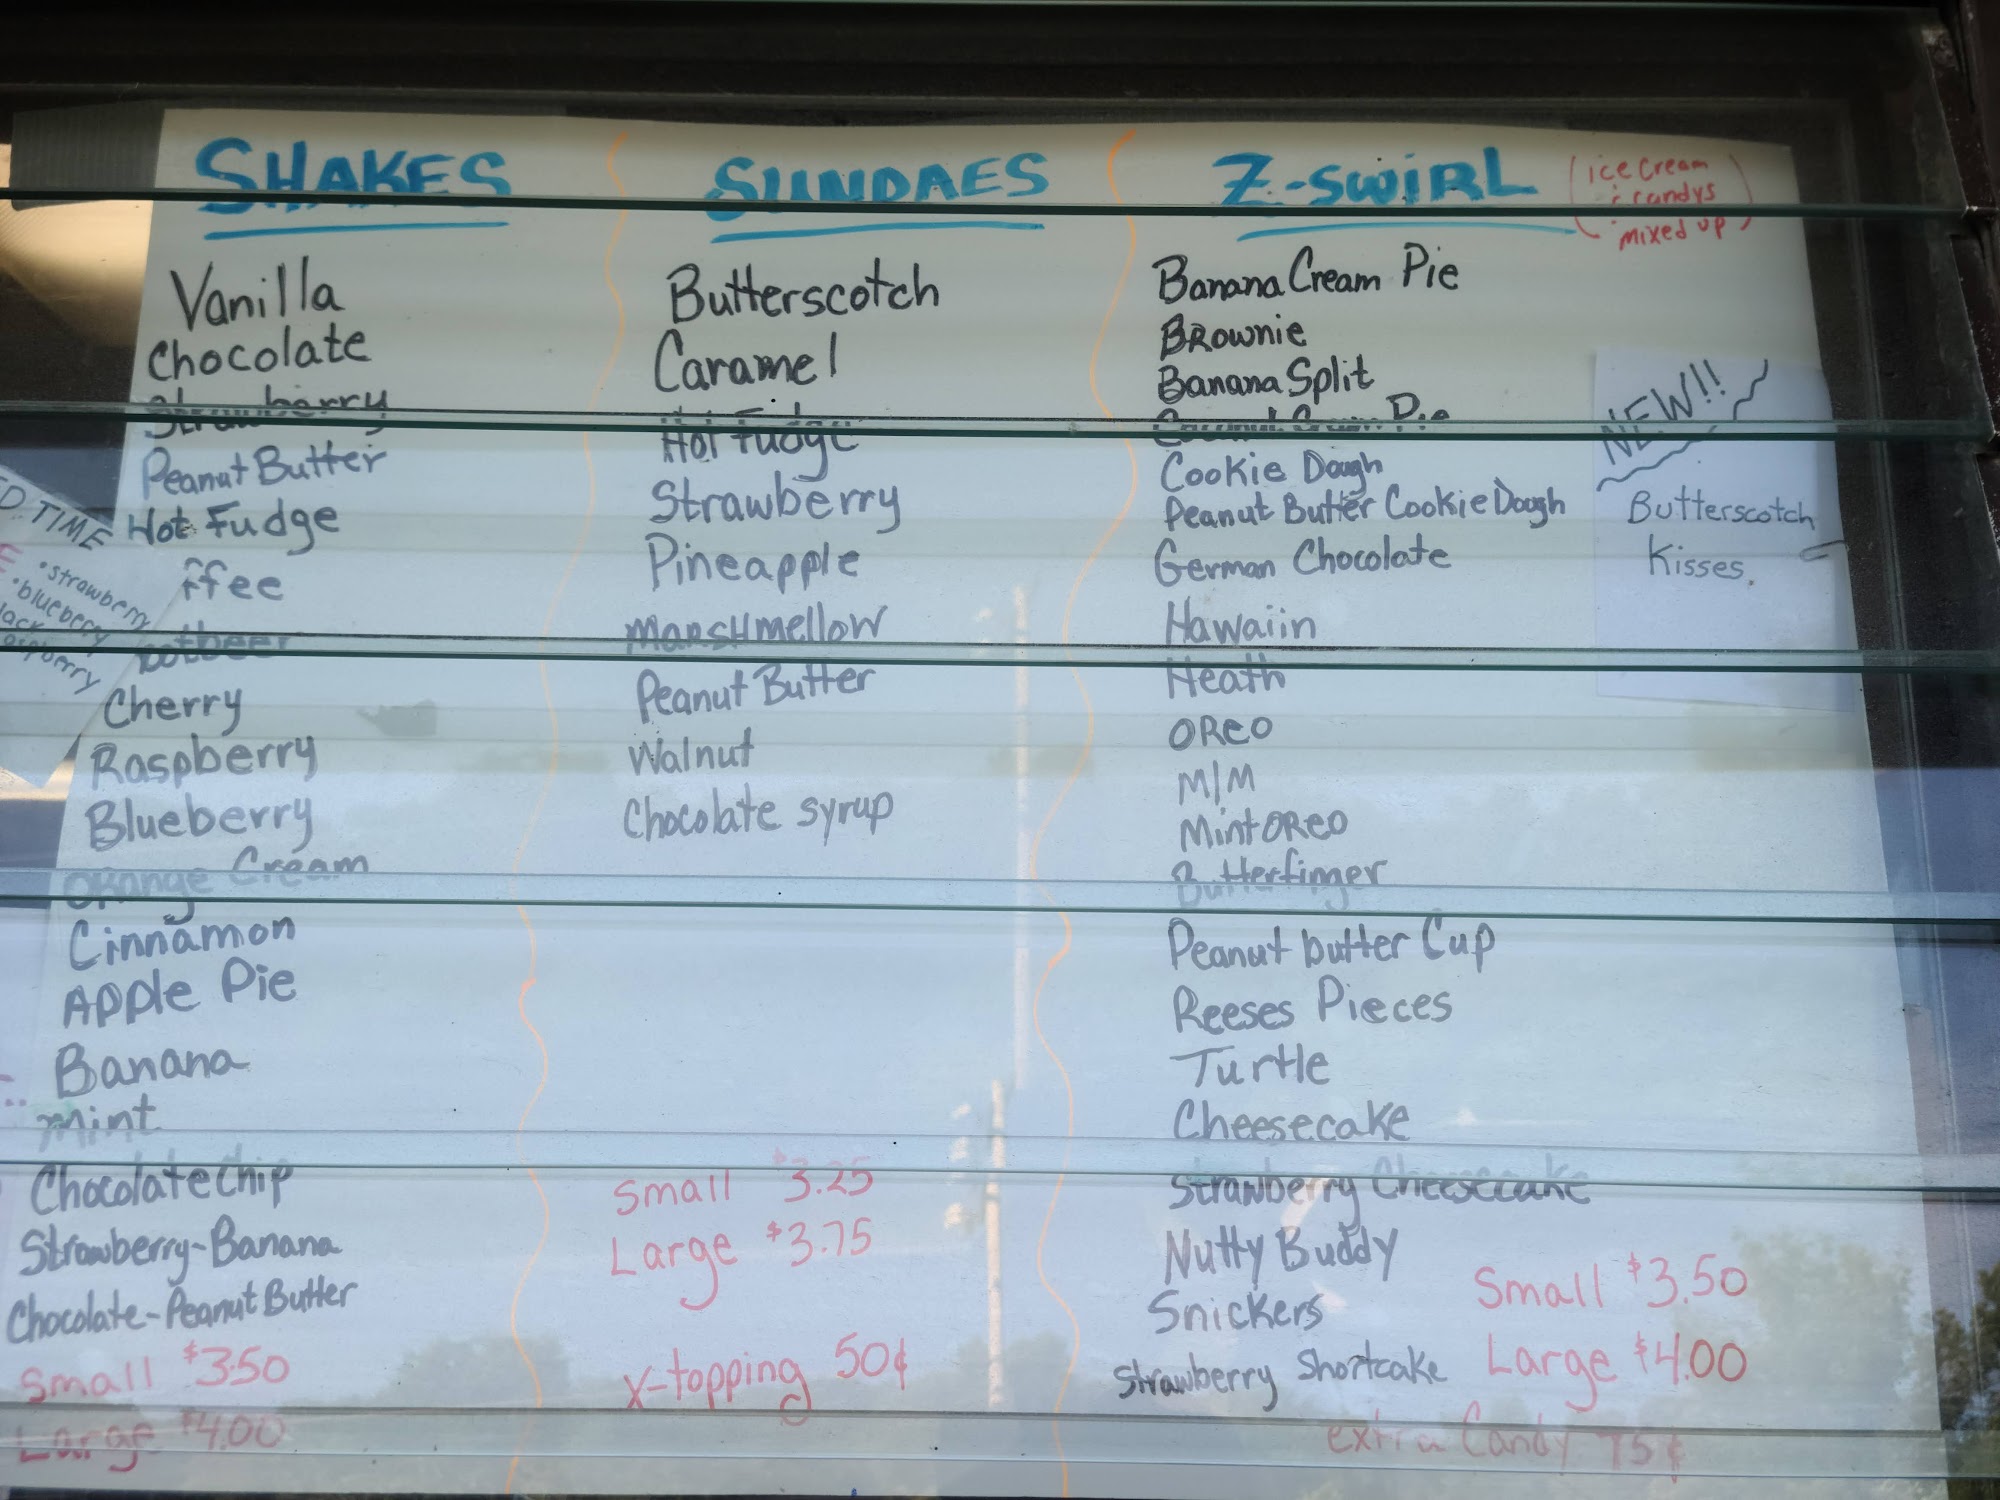 SHAKES
Vanilla
Chocolate
Strawberry
Peanut Butter
Hot Fudge
ffee
ootbeer
Cherry
Raspberry
Blueberry
Orange Cream
Cinnamon
Apple Pie
Banana
mint
Chocolate Chip
Strawberry-Banana
Chocolate-Peanut Butter
Small $3.50
Large $4.00
SUNDAES
Butterscotch
Caramel
Hot Fudge
Strawberry
Pineapple
Marshmellow
Peanut Butter
Walnut
Chocolate syrup
Small $3.25
Large $3.75
x-topping 50¢
Z-SWIRL
(ice cream
& candys
mixed up)
Banana Cream Pie
Brownie
Banana Split
Coconut Cream Pie
Cookie Dough
Peanut Butter Cookie Dough
German Chocolate
Hawaiin
Heath
OREO
M/M
Mint OREO
Butterfinger
Peanut butter Cup
Reeses Pieces
Turtle
Cheesecake
Strawberry Cheesecake
Nutty Buddy
Snickers
Strawberry Shortcake
Small $3.50
Large $4.00
extra Candy 75¢
NEW!!
Butterscotch
Kisses.
D TIME
•strawberry
•blueberry